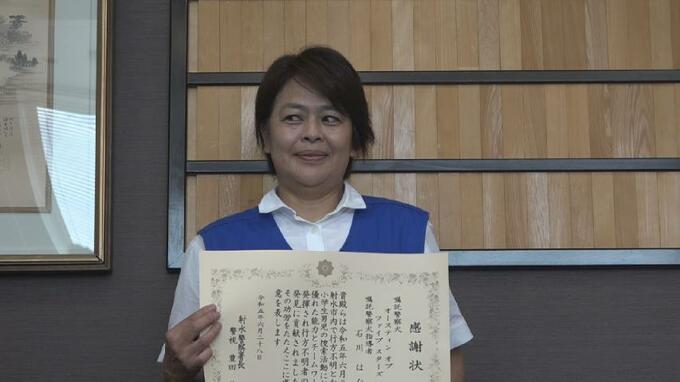 感謝状
嘱託警察犬
オースティン オブ
ファイブ スターズ
嘱託警察犬指導者
石川 は
貴殿らは令和五年六月
射水市内で行方不明と
小学生男児の捜索活動に
優れた能力とチームワー
発揮され行方不明者の
発見に貢献されました
その功労をたたえここに
意を表します
令和五年六月二十八日
射水警察署長
警視 豊田